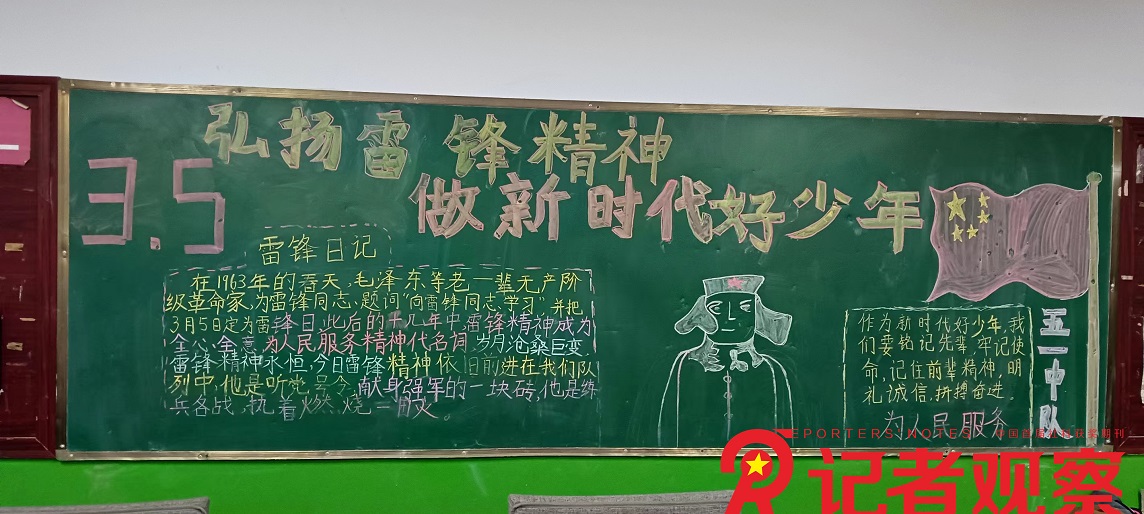 弘扬雷锋精神
3.5
做新时代好少年
雷锋日记
在1963年的春天,毛泽东等老一辈无产阶
级革命家,为雷锋同志,题词"向雷锋同志学习"并把
3月5日定为雷锋日,此后的半几年中,雷锋精神成为
全心,全意,为人民服务精神代名词,岁月沧桑巨变.
雷锋精神永恒,今日雷锋精神依旧前进在我们队
列中,他是听党号令,献身强军的一块砖,他是练
兵各战,执着燃烧一
作为新时代好少年,我
们要铭记先辈,牢记使
命,记住前辈精神,明
礼诚信,拼搏奋进.
为人民服务
五一中队
REPORTERS' NOTES
记者观察